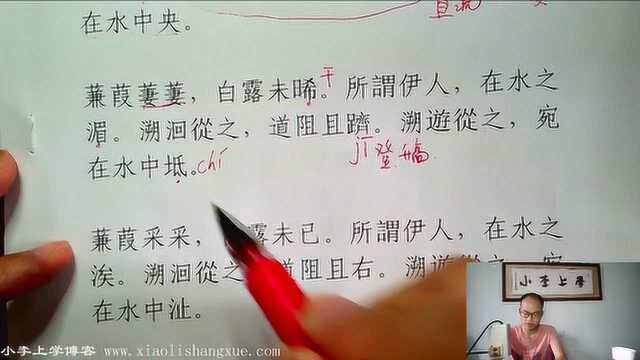 在水中央。
直流
蒹葭萋萋，白露未晞。所謂伊人，在水之
干
湄。溯洄從之，道阻且躋。溯遊從之，宛
在水中坻。chí
jī 登
蒹葭采采，露未已。所謂伊人，在水之
涘。溯洄從之，道阻且右。溯
在水中沚。
小李上学
小李上学博客 www.xiaolishangxue.com